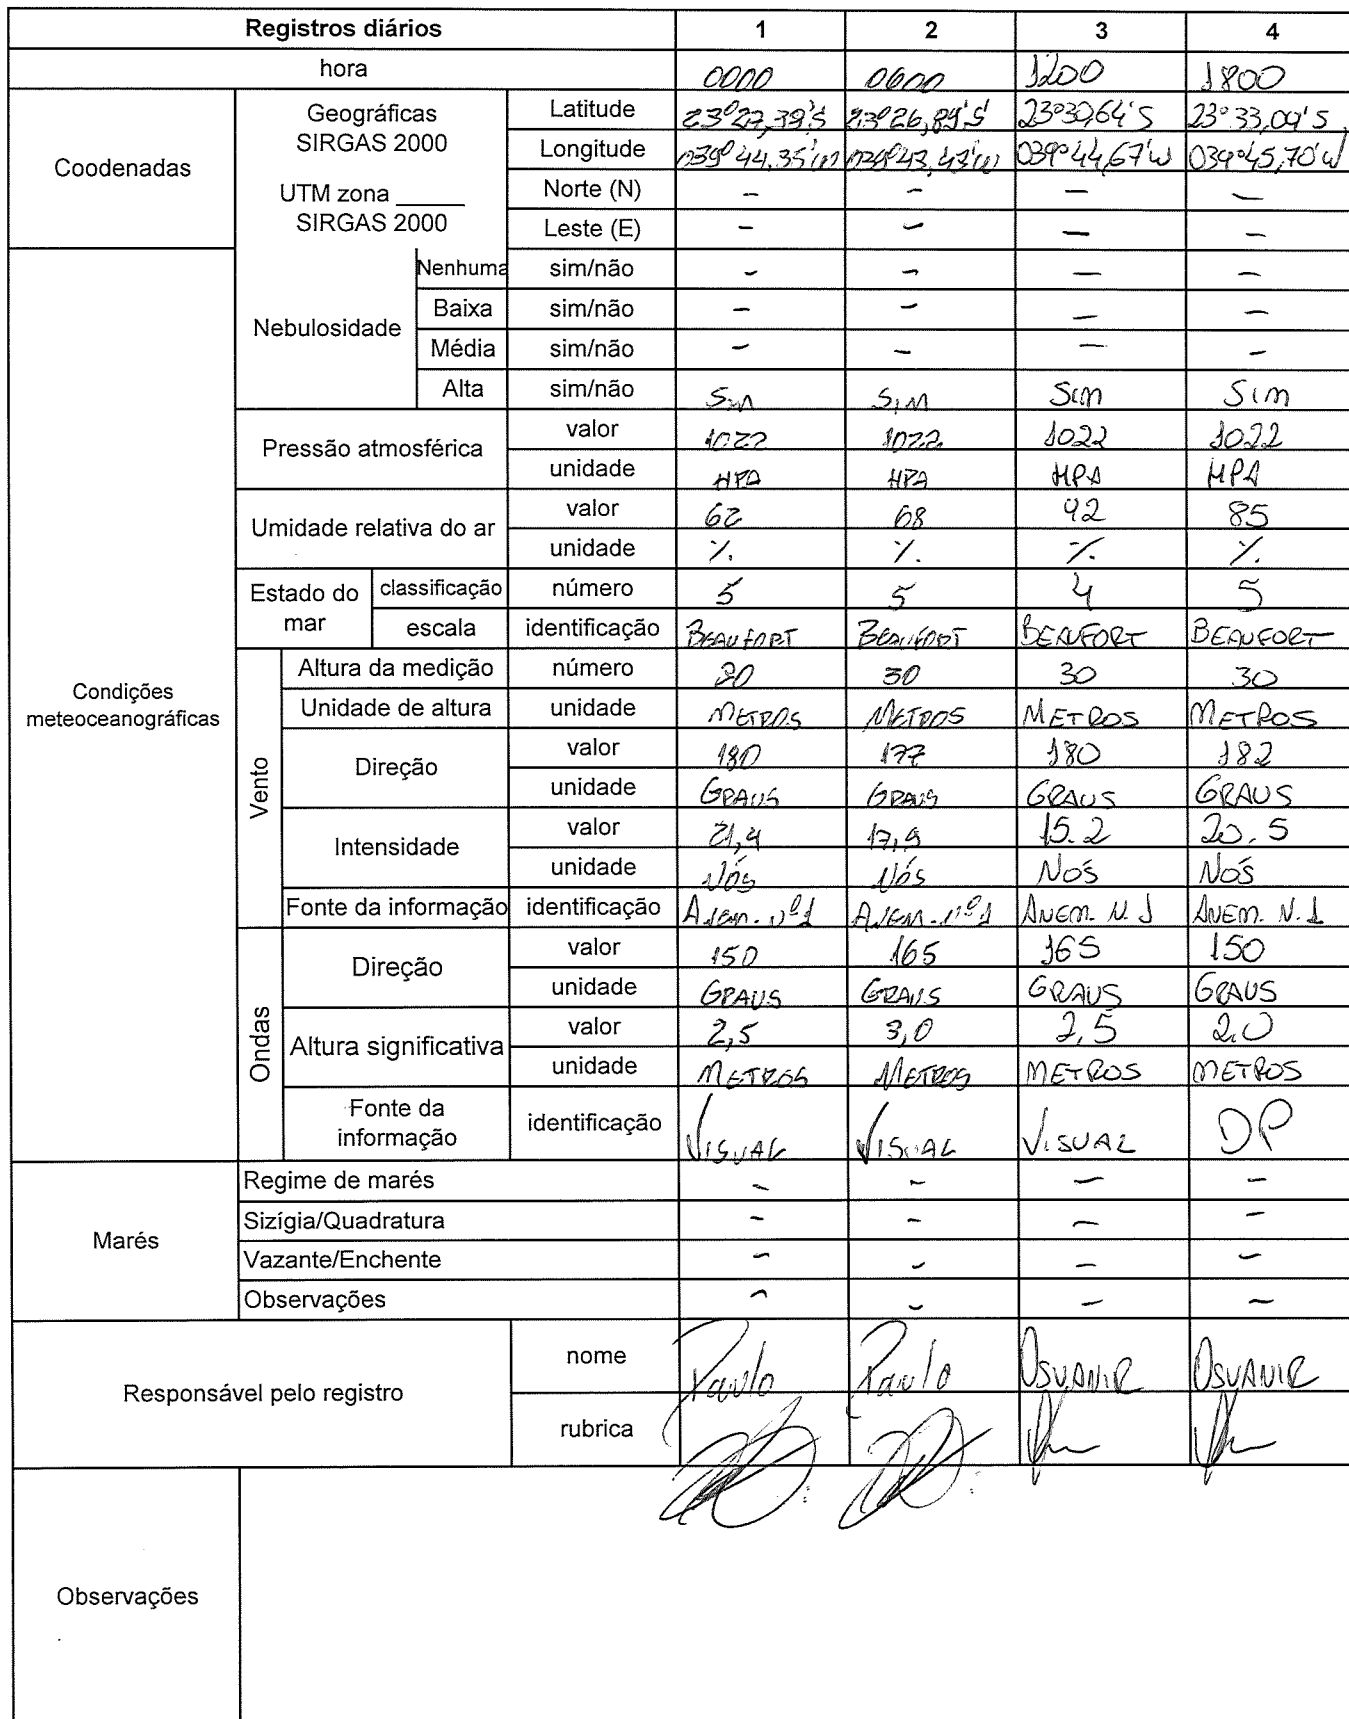 Registros diários 1 2 3 4
hora 0000 0600 1200 1800
Coodenadas
Geográficas SIRGAS 2000
UTM zona _____ SIRGAS 2000
Latitude 23°27,39'S 23°26,89'S 23°30,64'S 23°33,09'S
Longitude 039°44,35'W 039°43,43'W 039°44,67'W 039°45,70'W
Norte (N) - - - -
Leste (E) - - - -
Condições meteoceanográficas
Nebulosidade
Nenhuma sim/não - - - -
Baixa sim/não - - - -
Média sim/não - - - -
Alta sim/não Sim Sim Sim Sim
Pressão atmosférica
valor 1022 1022 1022 1022
unidade HPA HPA HPA HPA
Umidade relativa do ar
valor 62 68 92 85
unidade % % % %
Estado do mar
classificação número 5 5 4 5
escala identificação BEAUFORT BEAUFORT BEAUFORT BEAUFORT
Vento
Altura da medição número 30 30 30
Unidade de altura unidade METROS METROS METROS METROS
Direção
valor 180 177 180 182
unidade GRAUS GRAUS GRAUS GRAUS
Intensidade
valor 21,4 17,9 15.2 20.5
unidade Nós Nós Nós Nós
Fonte da informação identificação ANEM. Nº1 ANEM. Nº1 ANEM. N.1 ANEM. N.1
Ondas
Direção
valor 150 165 165 150
unidade GRAUS GRAUS GRAUS GRAUS
Altura significativa
valor 2,5 3,0 2,5 2,0
unidade METROS METROS METROS METROS
Fonte da informação identificação VISUAL VISUAL VISUAL DP
Marés
Regime de marés - - - -
Sizígia/Quadratura - - - -
Vazante/Enchente - - - -
Observações - - - -
Responsável pelo registro
nome Paulo Paulo OSVANIR OSVANIR
rubrica
Observações